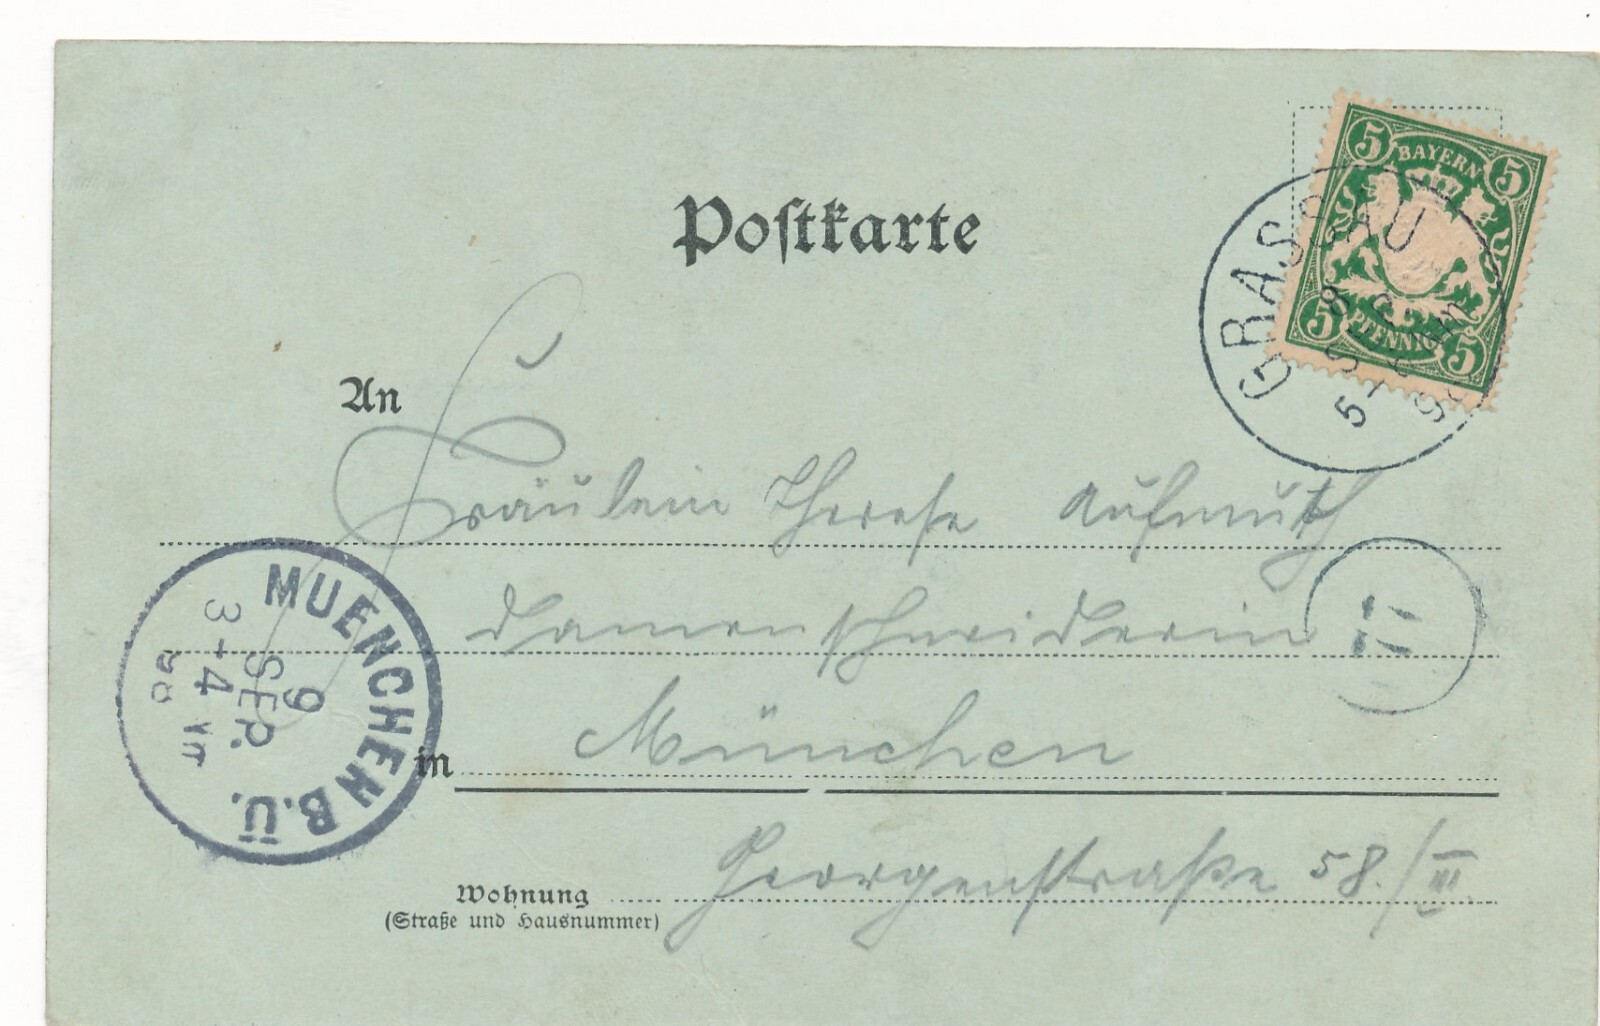 Postkarte
5 BAYERN 5
5 PFENNIG 5
GRASSAU
8 SEP
An
Fräulein Therese Aufmuth
Damenschneiderin
17
in München
MUENCHEN B.Ü.
9
SEP.
3-4
Wohnung Georgenstraße 58./III
(Straße und Hausnummer)